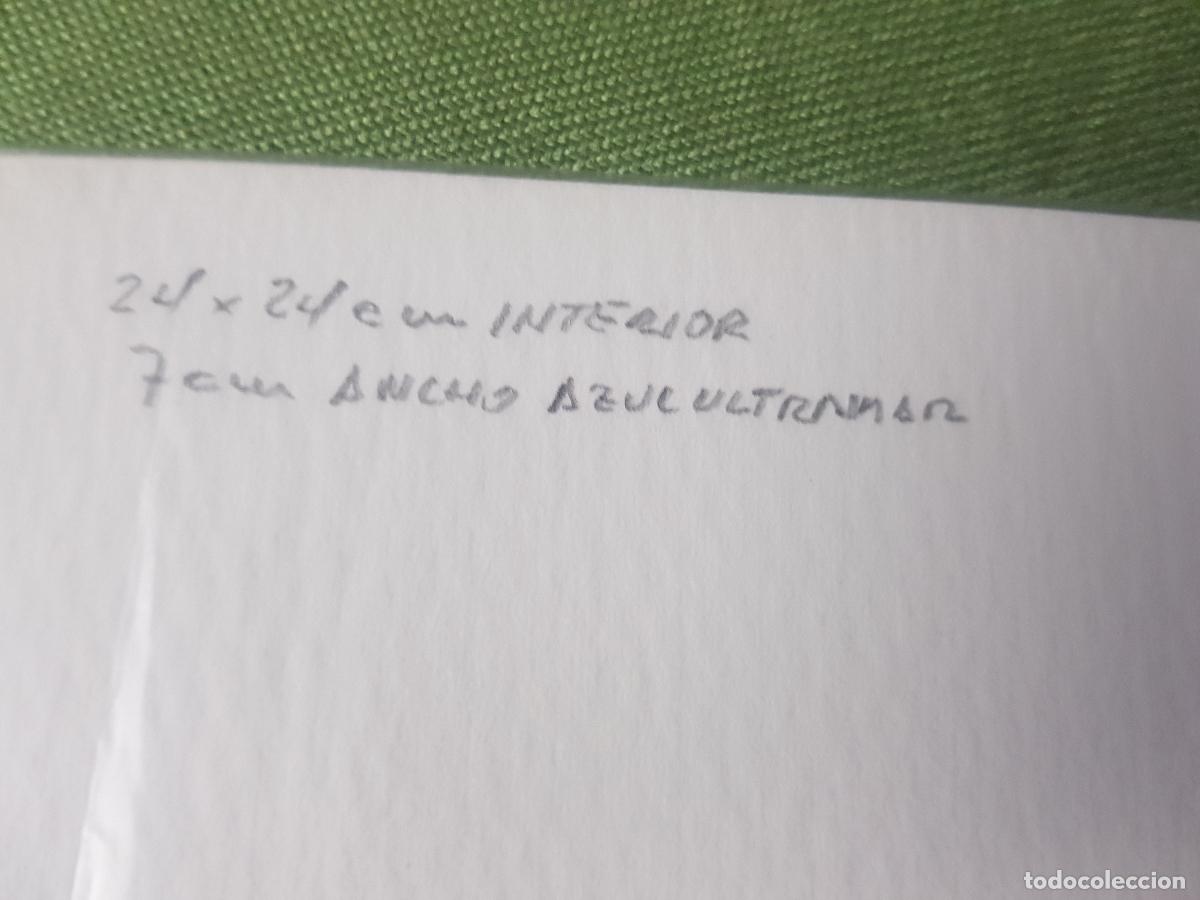 24 x 24 cm INTERIOR
7 cm ANCHO AZUL ULTRAMAR
todocoleccion